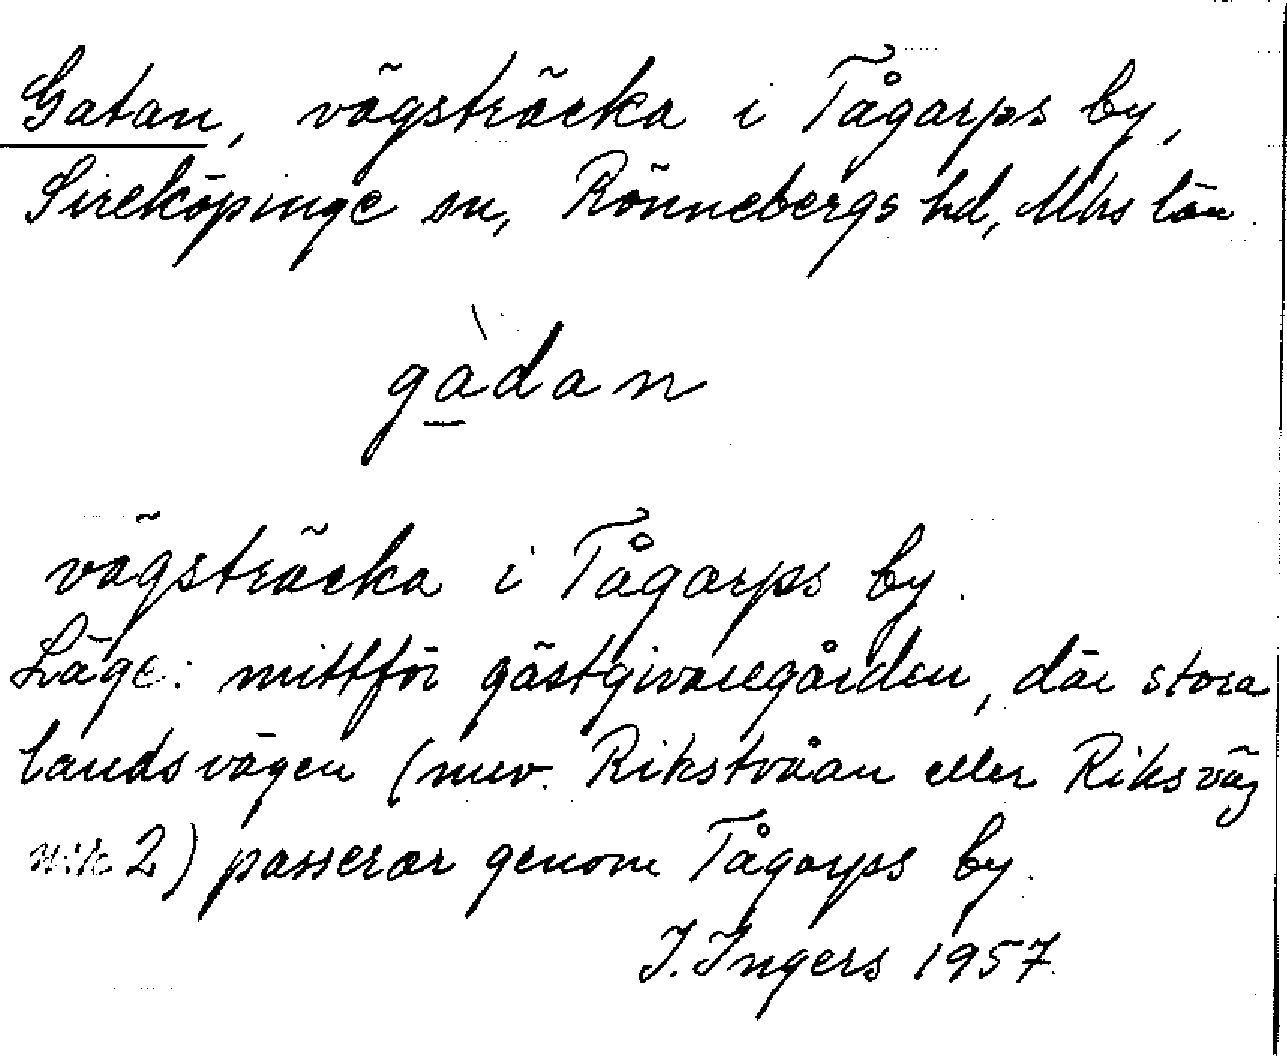 Gatan, vägsträcka i Tågarps by,
Sireköpinge sn, Rönnebergs hd, Mhs län.
gàdan
vägsträcka i Tågarps by.
Läge: mittför gästgivaregården, där stora
landsvägen (nuv. Rikstvåan eller Riksväg
2) passerar genom Tågarps by.
I. Ingers 1957.